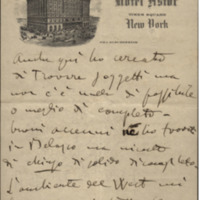 Hotel Astor
TIMES SQUARE
New York
Anche qui ho cercato
di trovare soggetti ma
non c'è nulla di possibile
o meglio di completo
buoni accenni ne ho trovati
in Belasco ma niente
di di solido di completo.
L'ambiente del West mi